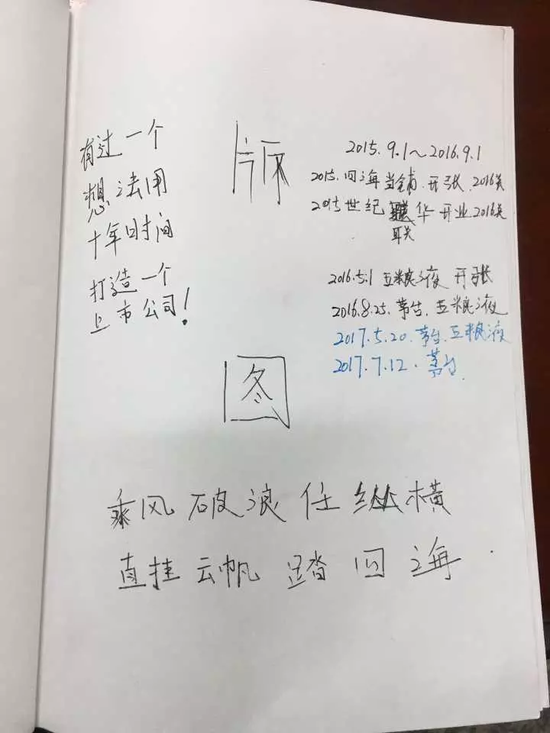 有过一个
想法用
十年时间
打造一个
上市公司!
版
图
2015.9.1~2016.9.1
2015.四海当铺.开张 2016关
2015世纪 华开业.2016关
联
2016.5.1 五粮液 开张
2016.8.25.茅台.五粮液
2017.5.20.茅台.五粮液
2017.7.12.茅台
乘风破浪任纵横
直挂云帆踏四海.